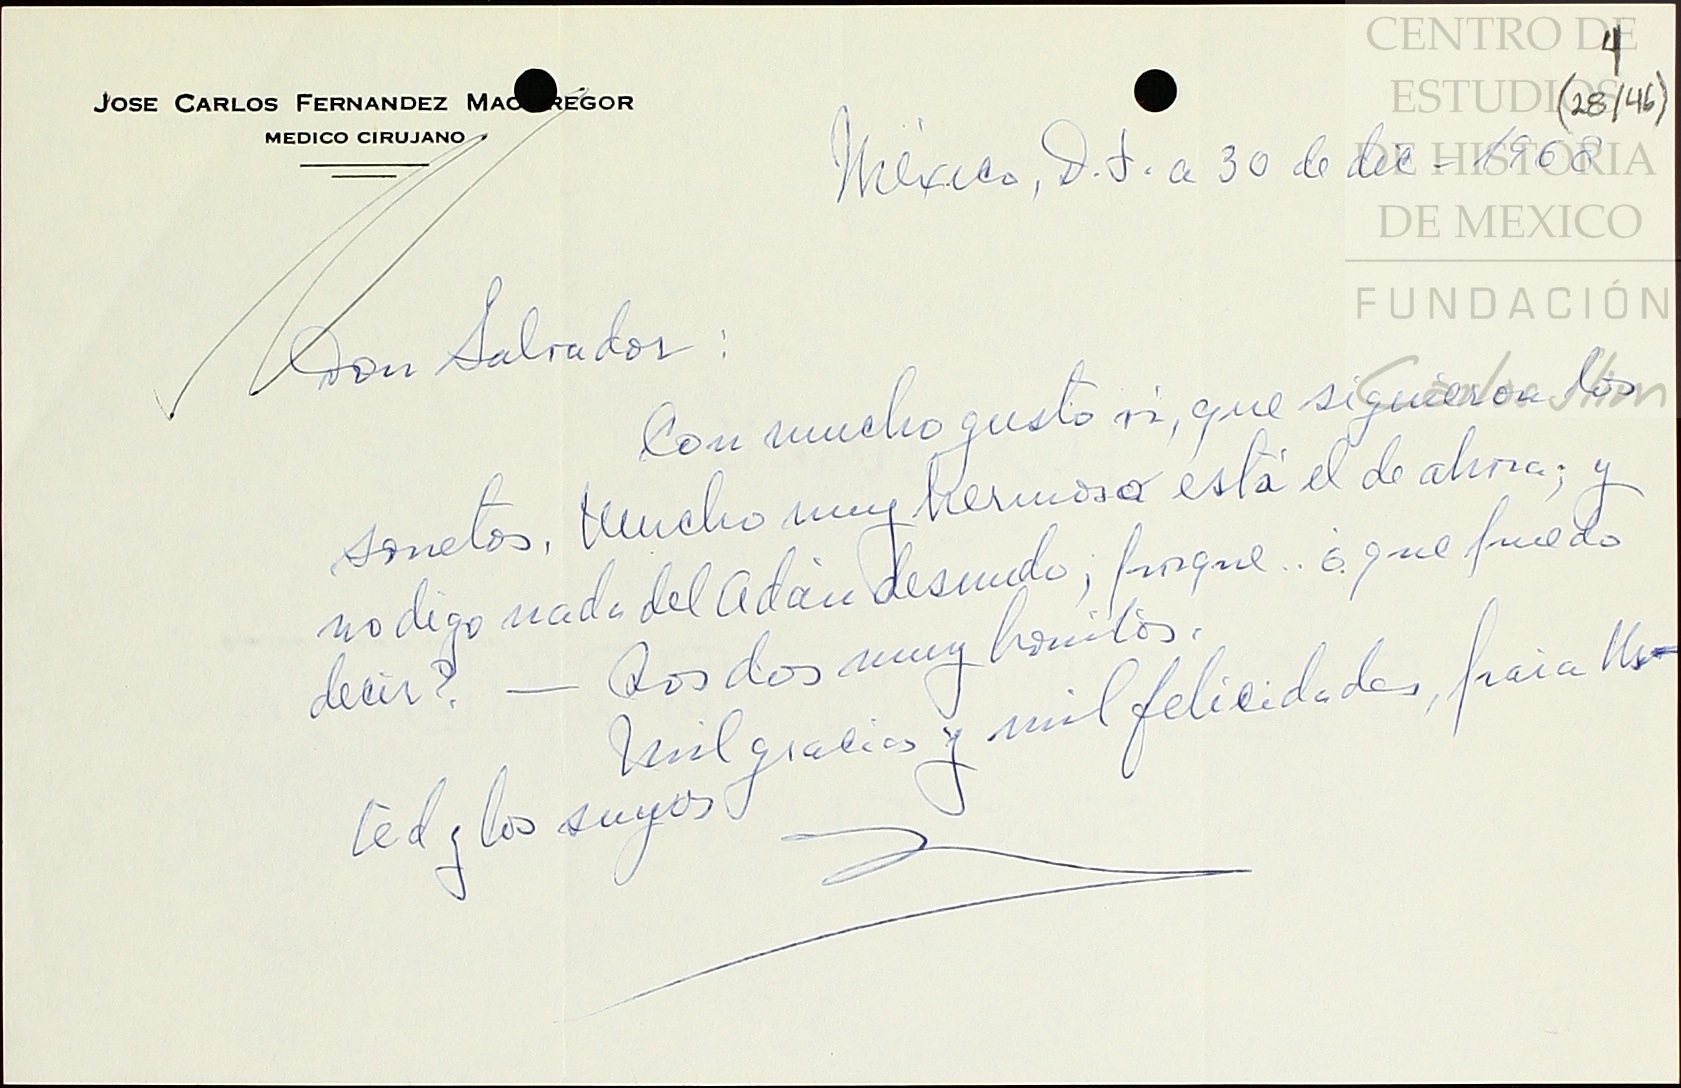 CENTRO DE
ESTUDIOS
DE HISTORIA
DE MEXICO
FUNDACIÓN
Carlos Slim
4
(28/46)
JOSE CARLOS FERNANDEZ MACGREGOR
MEDICO CIRUJANO
México, D.F. a 30 de dic - 1968
Don Salvador:
Con mucho gusto vi, que siguieron los
sonetos. Mucho muy hermoso está el de ahora; y
no digo nada del Adán desnudo; porque.. ¿que puedo
decir? — Los dos muy bonitos.
Mil gracias y mil felicidades, para Us-
ted y los suyos